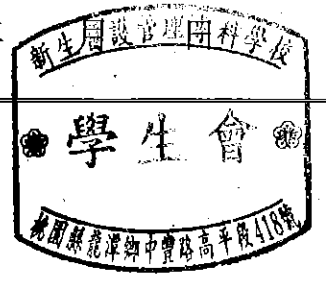 新生醫護管理專科學校
學生會
桃園縣龍潭鄉中豐路高平段418號